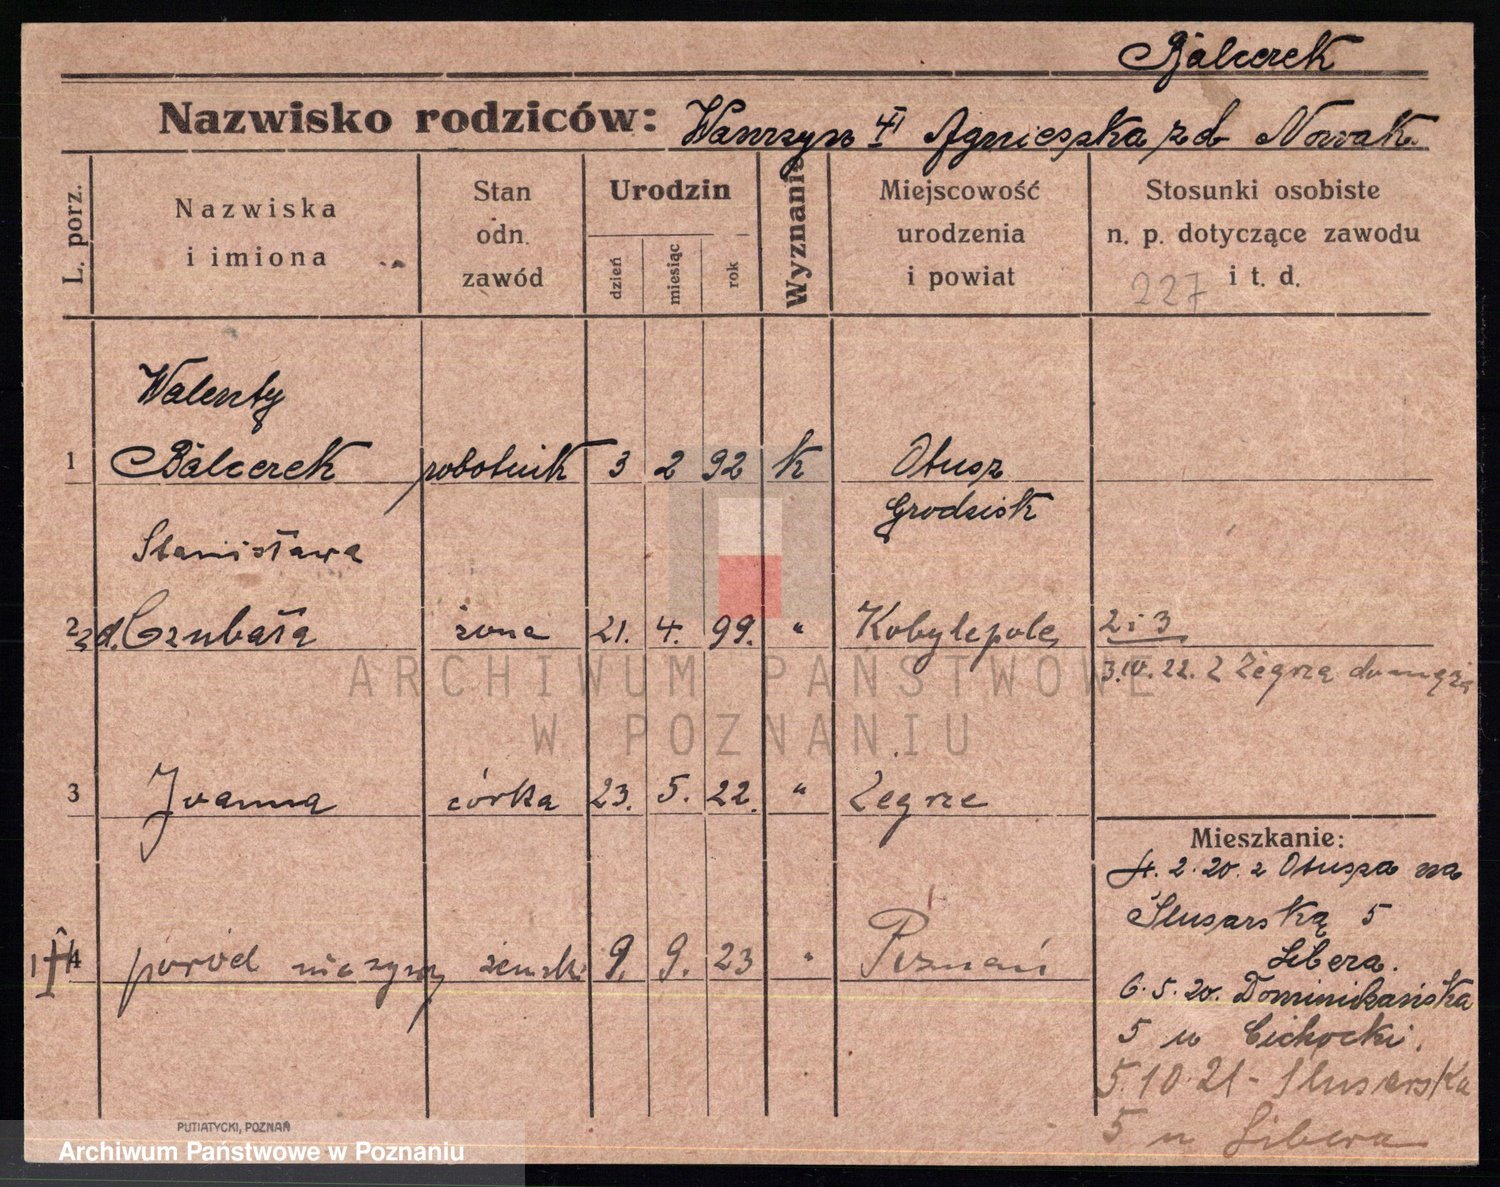 Balcerek
Nazwisko rodziców: Wawrzyn i Agnieszka z d. Nowak
L. porz.
Nazwiska
i imiona
Stan
odn.
zawód
Urodzin
dzień
miesiąc
rok
Wyznanie
Miejscowość
urodzenia
i powiat
Stosunki osobiste
n. p. dotyczące zawodu
i t. d.
227
Walenty
1 Balcerek robotnik 3 2 92 k Otusz
Grodzisk
Stanisława
2 z d. Czubała żona 21. 4. 99. " Kobylepole 2 i 3
3.IV.22. z Żegrza do męża
3 Joanna córka 23. 5. 22. " Żegrze
Mieszkanie:
4. 2. 20. z Otusza na
Ślusarską 5
Libera.
4 poród nieżywy żeński 9. 9. 23 " Poznań
6. 5. 20. Dominikańska
5 u Cichocki.
5.10.21 - Slusarska
5 u Libera
PUTIATYCKI, POZNAŃ
ARCHIWUM PAŃSTWOWE
W POZNANIU
Archiwum Państwowe w Poznaniu